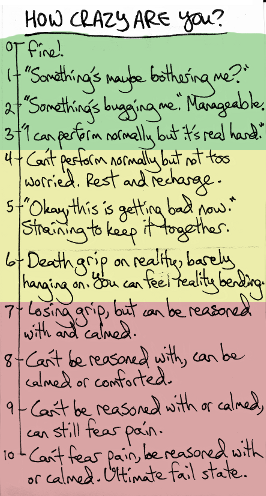 HOW CRAZY ARE YOU?
0 Fine!
1 "Something's maybe bothering me?"
2 "Something's bugging me." Manageable.
3 "I can perform normally but it's real hard."
4 Can't perform normally but not too
worried. Rest and recharge.
5 "Okay, this is getting bad now."
Straining to keep it together.
6 Death grip on reality, barely
hanging on. You can feel reality bending.
7 Losing grip, but can be reasoned
with and calmed.
8 Can't be reasoned with, can be
calmed or comforted.
9 Can't be reasoned with or calmed,
can still fear pain.
10 Can't fear pain, be reasoned with
or calmed. Ultimate fail state.